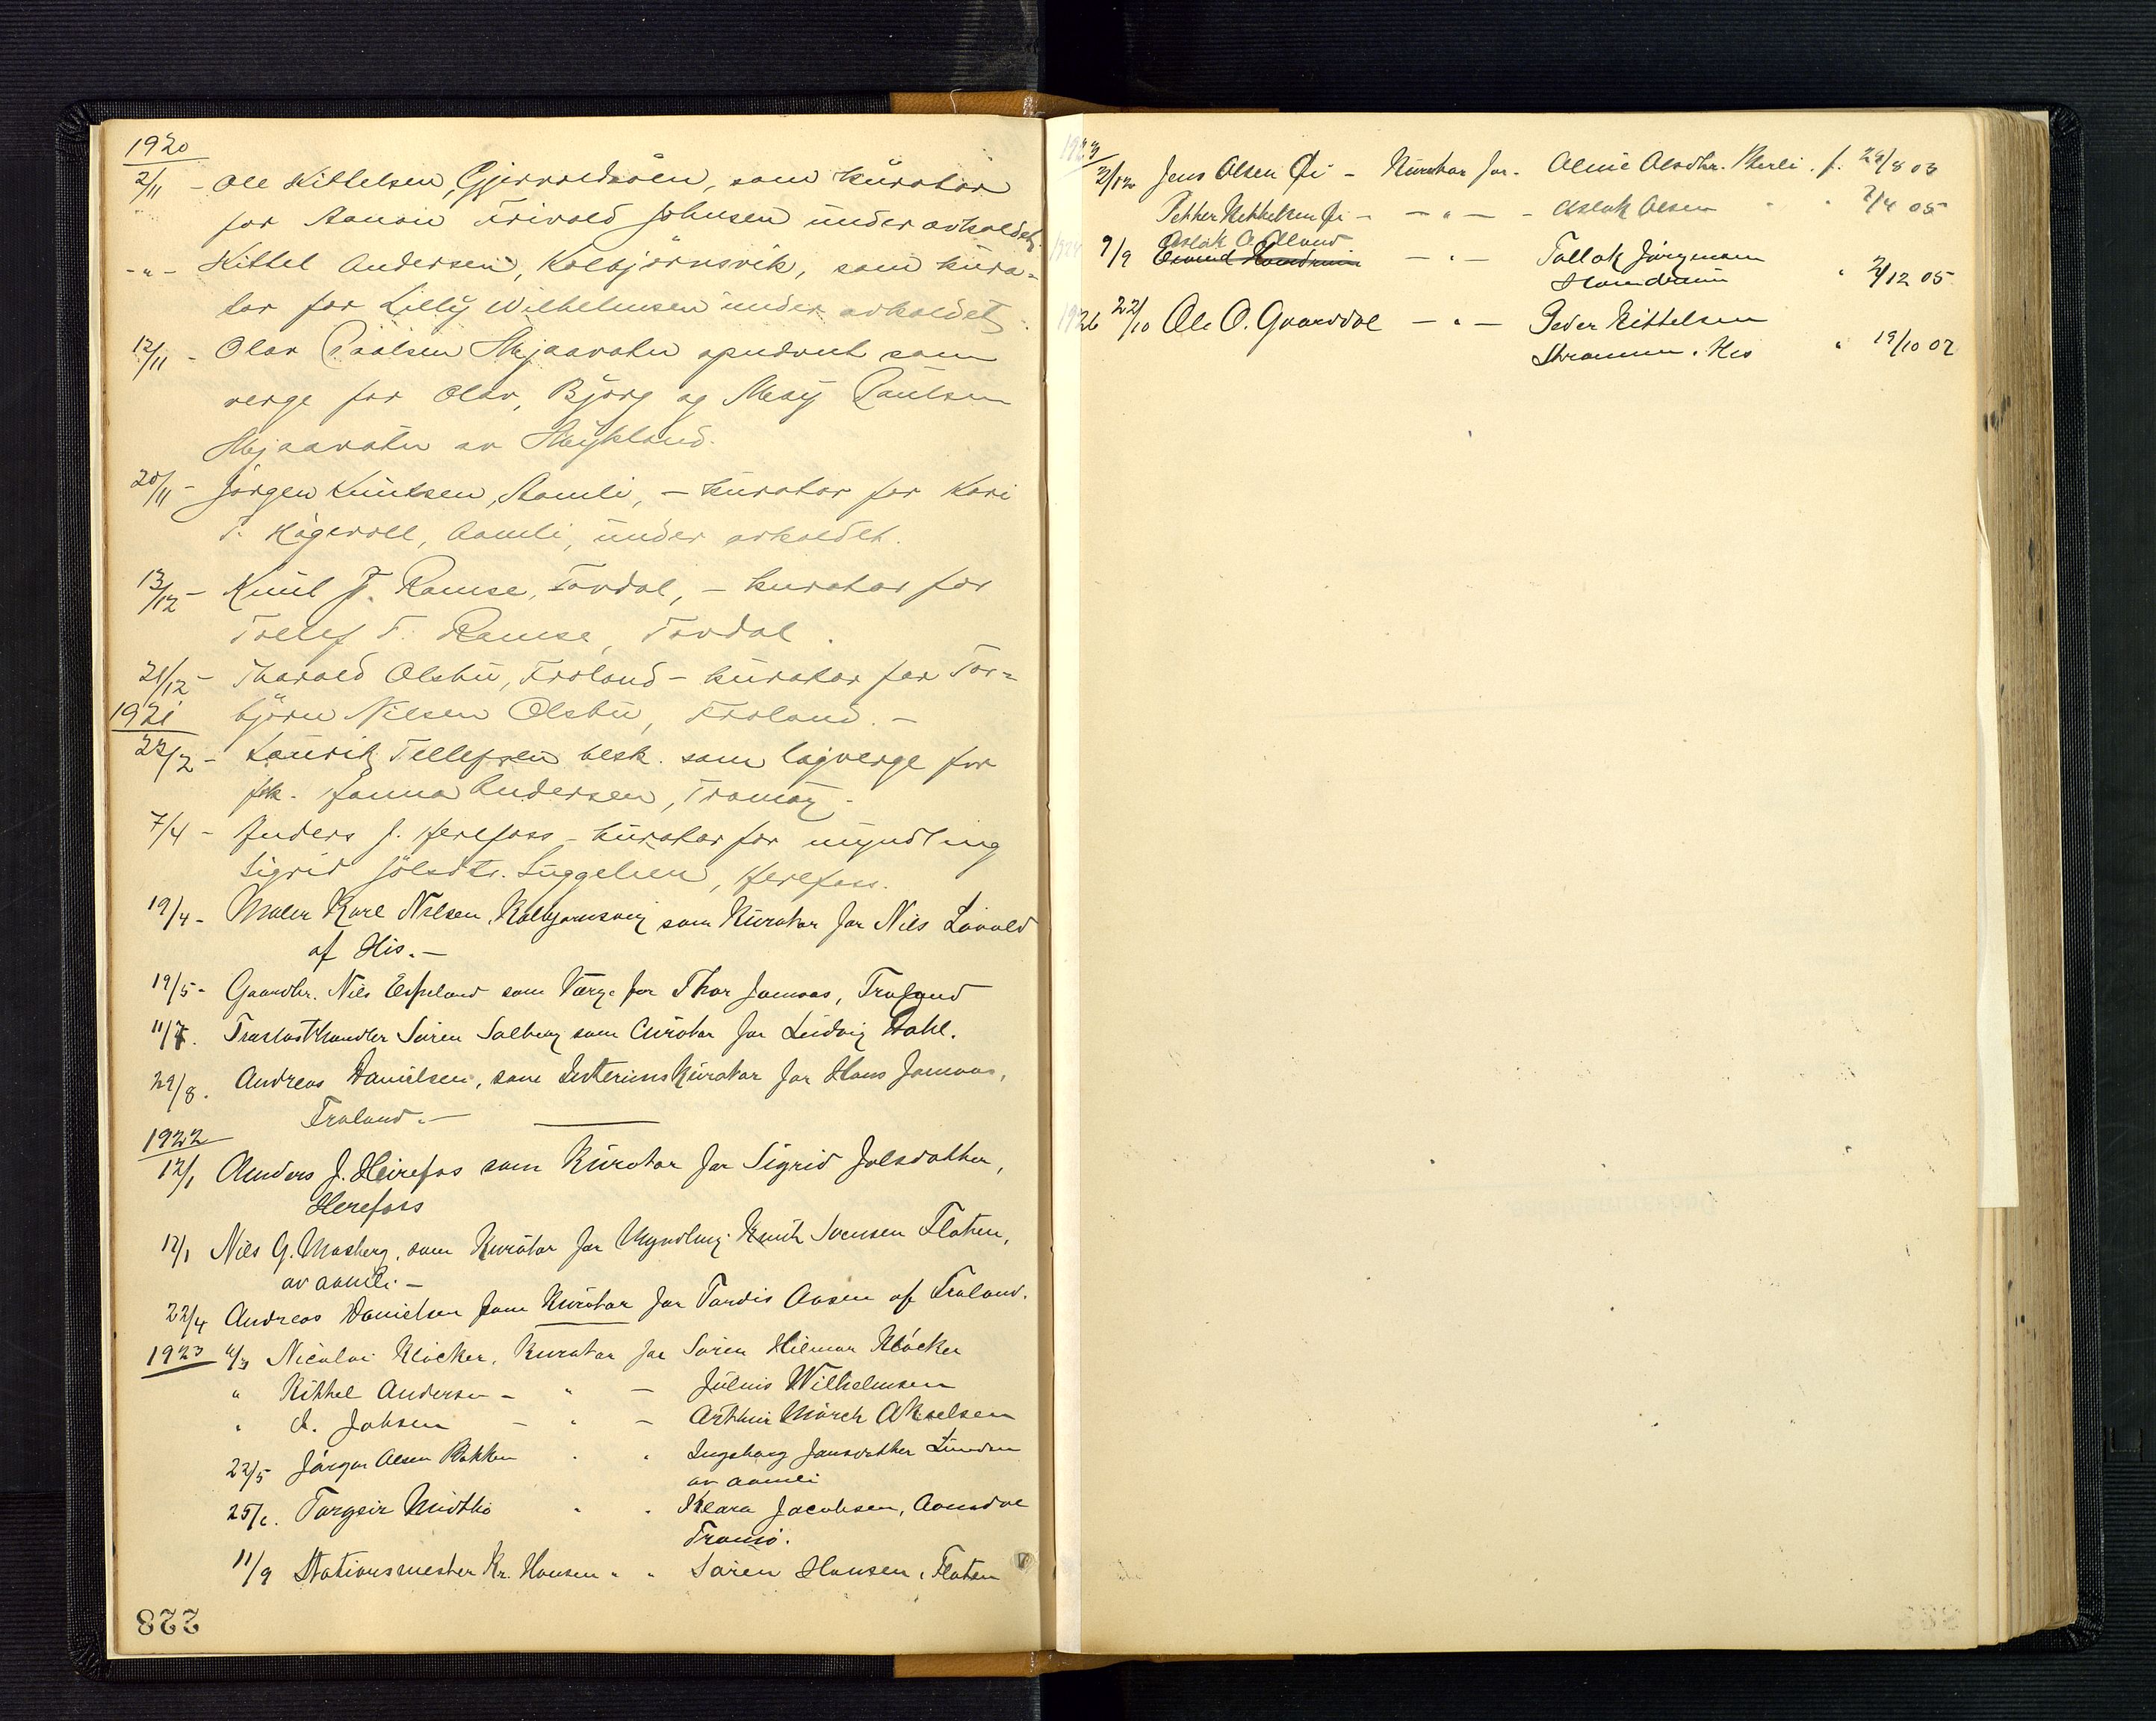 1920
2/11 - Ole Kittelsen, Gjervoldsöen, som kurator
for Aanon Trivold Johnsen under avholdet,
-„- Kittel Andersen, Kolbjörnsvik, som kura-
tor for Lilly Wilhelmsen under avholdet
12/11 - Olav Paalsen Mjaavatn opnevnt som
verge for Olav, Björg og May Paulsen
Mjaavatn av Mykland.
20/11 - Jörgen Knutsen, Aamli, - kurator for Kari
T. Högevoll, Aamli, under avholdet.
13/12 - Knut T. Ramse, Tovdal, - kurator for
Tellef T. Ramse, Tovdal.
21/12 - Tharald Olsbu, Froland - kurator for Tor-
1921 björn Nilsen Olsbu, Froland. -
22/2 - Lauritz Tellefsen besk. som lagverge for
frk. Janna Andersen, Tromöy -
7/4 - Anders J. Herefoss - kurator for myndling
Sigrid Jölsdtr. Herefoss.
19/4 - Maler Karl Nilsen, Kolbjørnsvig som Kurator for Nils Lövold
af His. -
19/5 - Gaardbr. Nils Espeland som Værge for Thor Jomaas, Froland
11/7. Trælasthandler Sören Salberg som Curator for Ludvig Dahl.
29/8. Andreas Danielsen, som Interimskurator for Hans Jomaas,
Froland. -
1922
12/1 Anders J. Heirefos som Kurator for Sigrid Jolsdatter,
Herefoss
12/1 Nils G. Mosberg, som Kurator for Myndling Knut Svensen Flaten,
av Aamli. -
22/4 Andreas Danielsen som Kurator for Tordis Aasen af Froland.
1923 6/3 Nicolai Klöcker, Kurator for Sören Hilmar Klöcker
„ Kittel Andersen - „ - Julius Wilhelmsen
„ A. Jobsen - „ - Arthur Mörch Akselsen
22/5 Jörgen Olsen Bakken „ „ Ingeborg Jansdatter Lunden
av Aamli
25/6. Torgeir Midtbö „ „ Klara Jacobsen, Aamdal
Tromö.
11/9 Stationsmester Kr. Hansen „ „ Sören Hansen, Flaten
228
1923
3/12 Jens Olsen Øi - Kurator for - Oline Olsdtr. f. 29/8 03
Petter Kittelsen Øi - - „ - - Aslak Olsen „ „ 2/4 05
1924 9/9 Aslak O. Olland
Eivind Homdrum - „ - Tallak Jörgensen
Homdrum „ 2/12 05
1926 22/10 Ole O. Gaarddal - „ - Peder Kittelsen
Strømmen. His „ 19/10 07